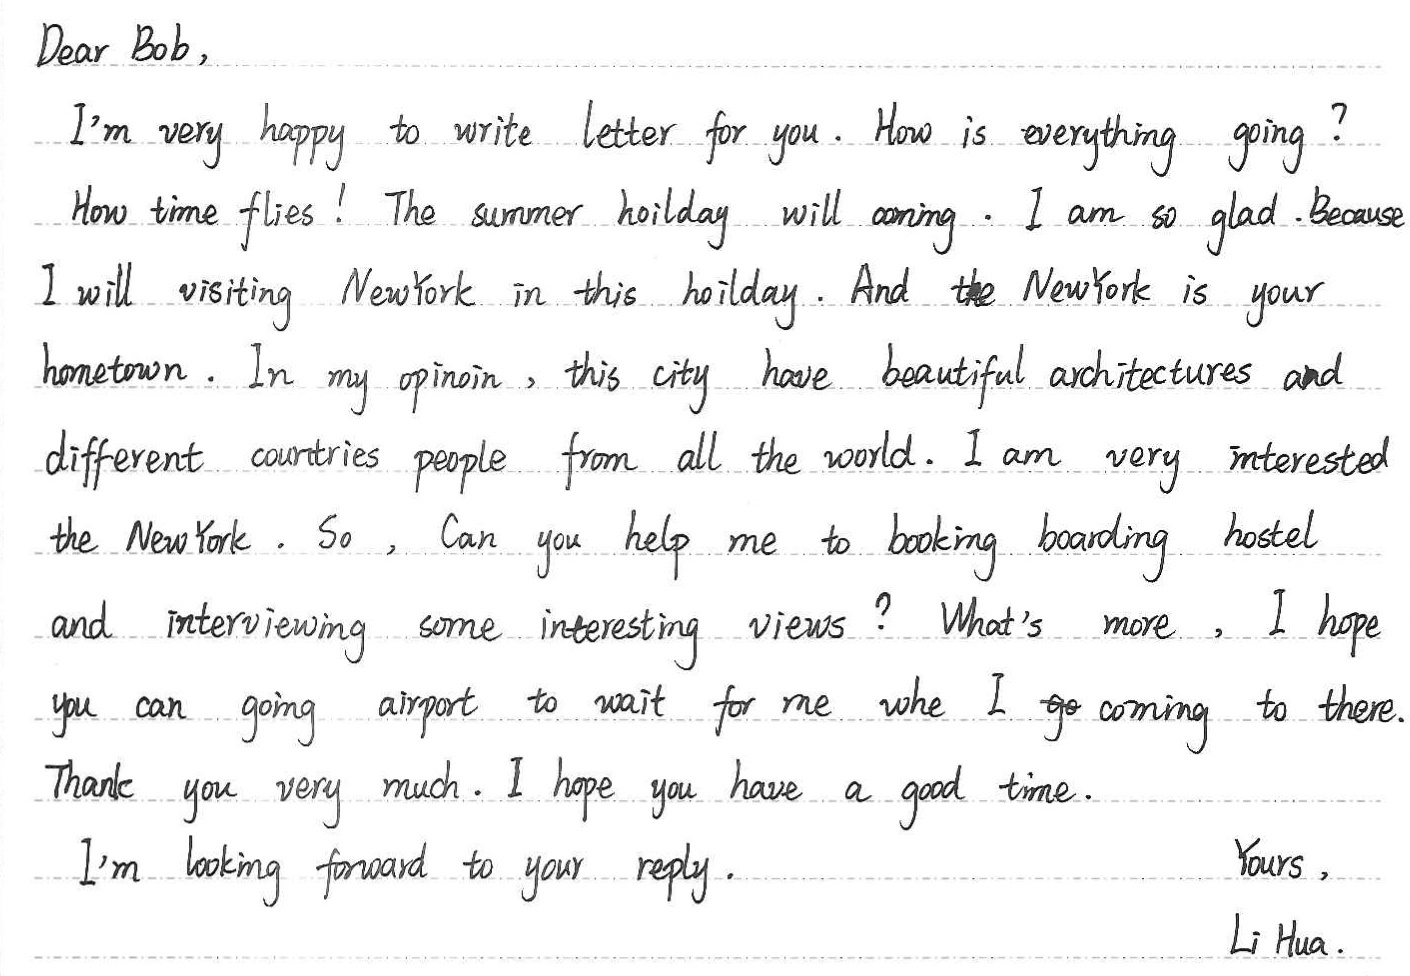 Dear Bob,
I'm very happy to write letter for you. How is everything going?
How time flies! The summer hoilday will coming. I am so glad. Because
I will visiting NewYork in this hoilday. And the NewYork is your
hometown. In my opinoin, this city have beautiful architectures and
different countries people from all the world. I am very interested
the NewYork. So, Can you help me to booking boarding hostel
and interviewing some interesting views? What's more, I hope
you can going airport to wait for me whe I go coming to there.
Thank you very much. I hope you have a good time.
I'm looking forward to your reply. Yours,
Li Hua.